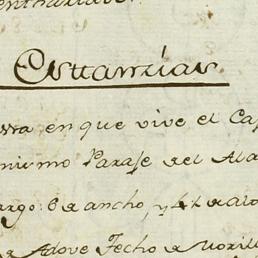 Estancias
en que vive el Cap
mismo Paraje del Ala
argo: 6 de ancho, y 4 ½ de alto
de Adove Techo de Morill